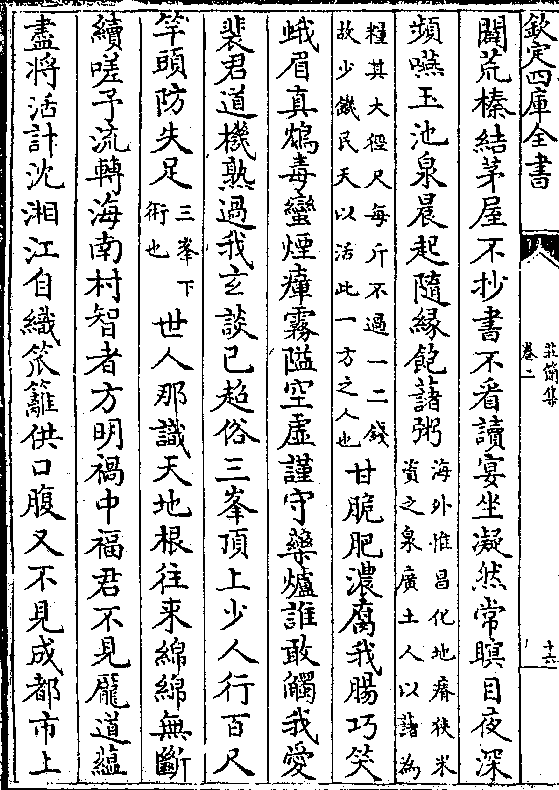 欽定四庫全書
莊簡集
卷二
十六
闢荒榛結茅屋不抄書不看讀宴坐凝然常瞑目夜深
頻嚥玉池泉晨起隨緣飽藷粥
海外惟昌化地瘠狹米
資之泉廣土人以藷為
糧其大徑尺每斤不過一二錢
故少饑民天以活此一方之人也
甘脆肥濃腐我腸巧笑
蛾眉真鴆毒蠻煙瘴霧隘空虛謹守藥爐誰敢觸我愛
裴君道機熟過我𤣥談已超俗三峯頂上少人行百尺
竿頭防失足
三峯下
術也
世人那識天地根往来綿綿無斷
續嗟予流轉海南村智者方明禍中福君不見龎道藴
盡將活計沈湘江自織笊籬供口腹又不見成都市上